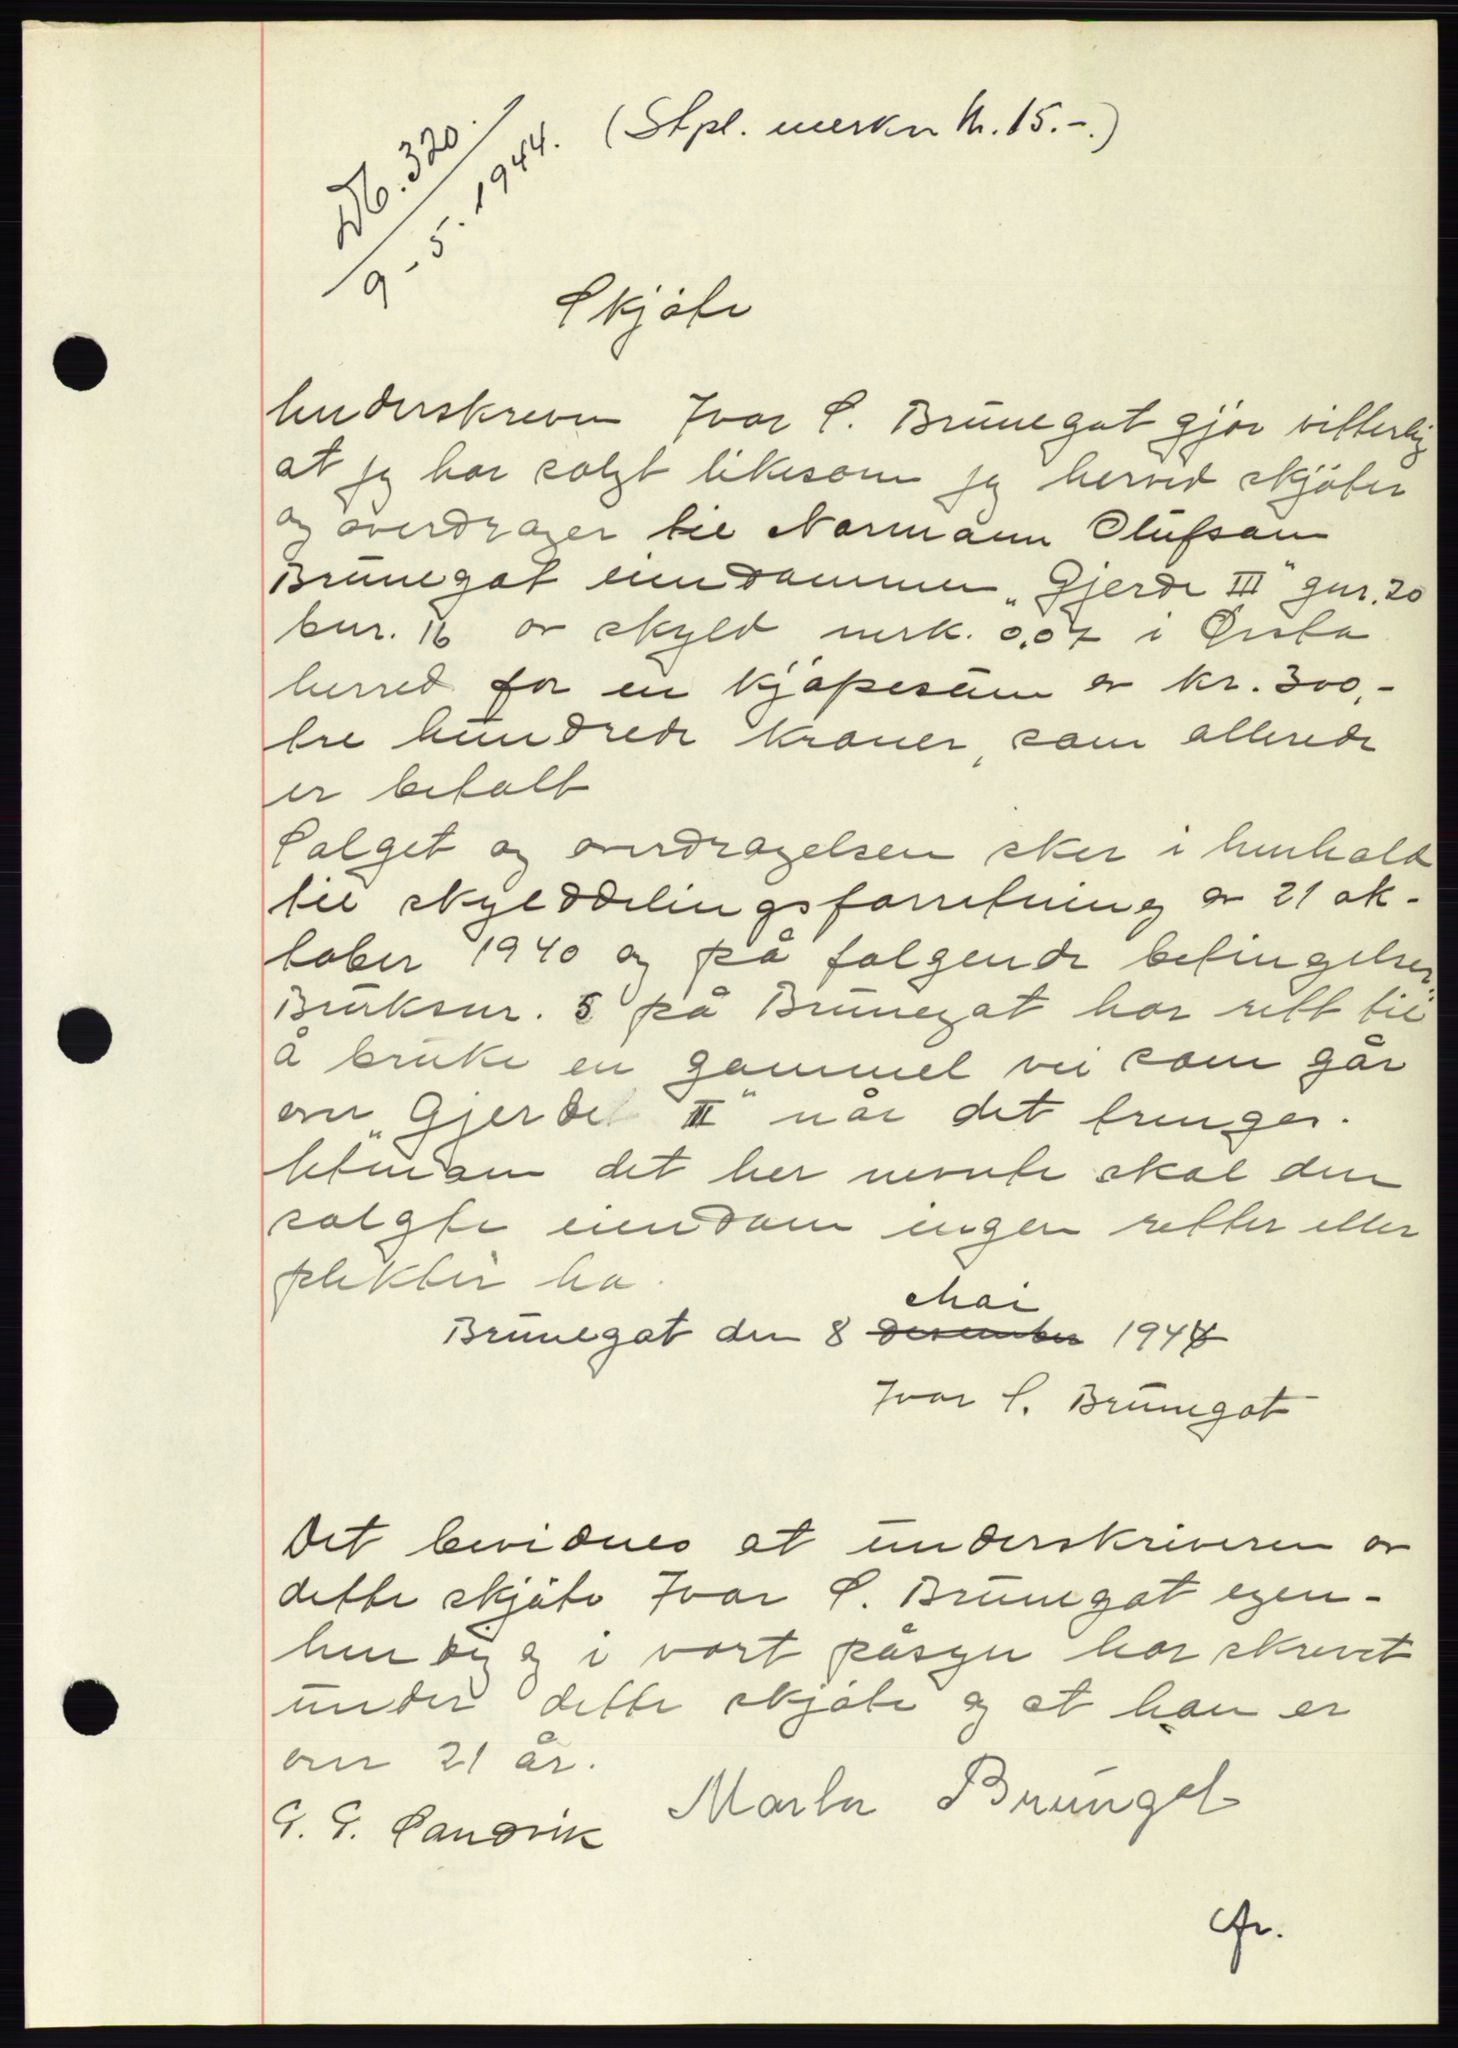 Db. 320.
9-5. 1944.
(Stpl. merker kr. 15.-.)
Skjöte
Underskreven Ivar S. Brunegot gjör vitterlig
at jeg har solgt likesom jeg herved skjöter
og overdrager til Normann Olufson
Brunegot eiendommen „Gjerde III" gnr. 20
bnr. 16 av skyld mrk. 0,07 i Ørsta
herred for en kjöpesum av kr. 300,-
tre hundrede kroner, som allerede
er betalt
Salget og overdragelsen sker i henhold
til skylddelingsforretning av 21 ok-
tober 1940 og på folgende betingelser:
Bruksnr. 5 på Brunegot har rett til
å bruke en gammel vei som går
over „Gjerde III" når det trenges.
Utenom det her nevnte skal den
solgte eiendom ingen retter eller
plikter ha.
Mai
Brunegot den 8 desember 1944
Ivar S. Brunegot
Det bevidnes at underskriveren av
dette skjöte Ivar S. Brunegot egen-
hendig og i vort påsyn har skrevet
under dette skjöte og at han er
over 21 år.
G. G. Sandvik Marta Brungot